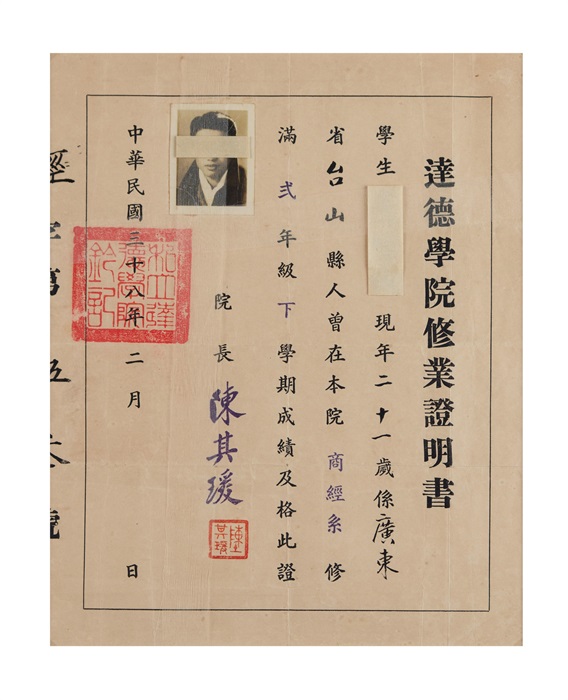 達德學院修業證明書
學生　現年二十一歲係廣東
省台山縣人曾在本院商經系修
滿弍年級下學期成績及格此證
院長陳其瑗
陳其瑗
中華民國三十八年二月　日
私立達德學院鈐記
經字第五六號